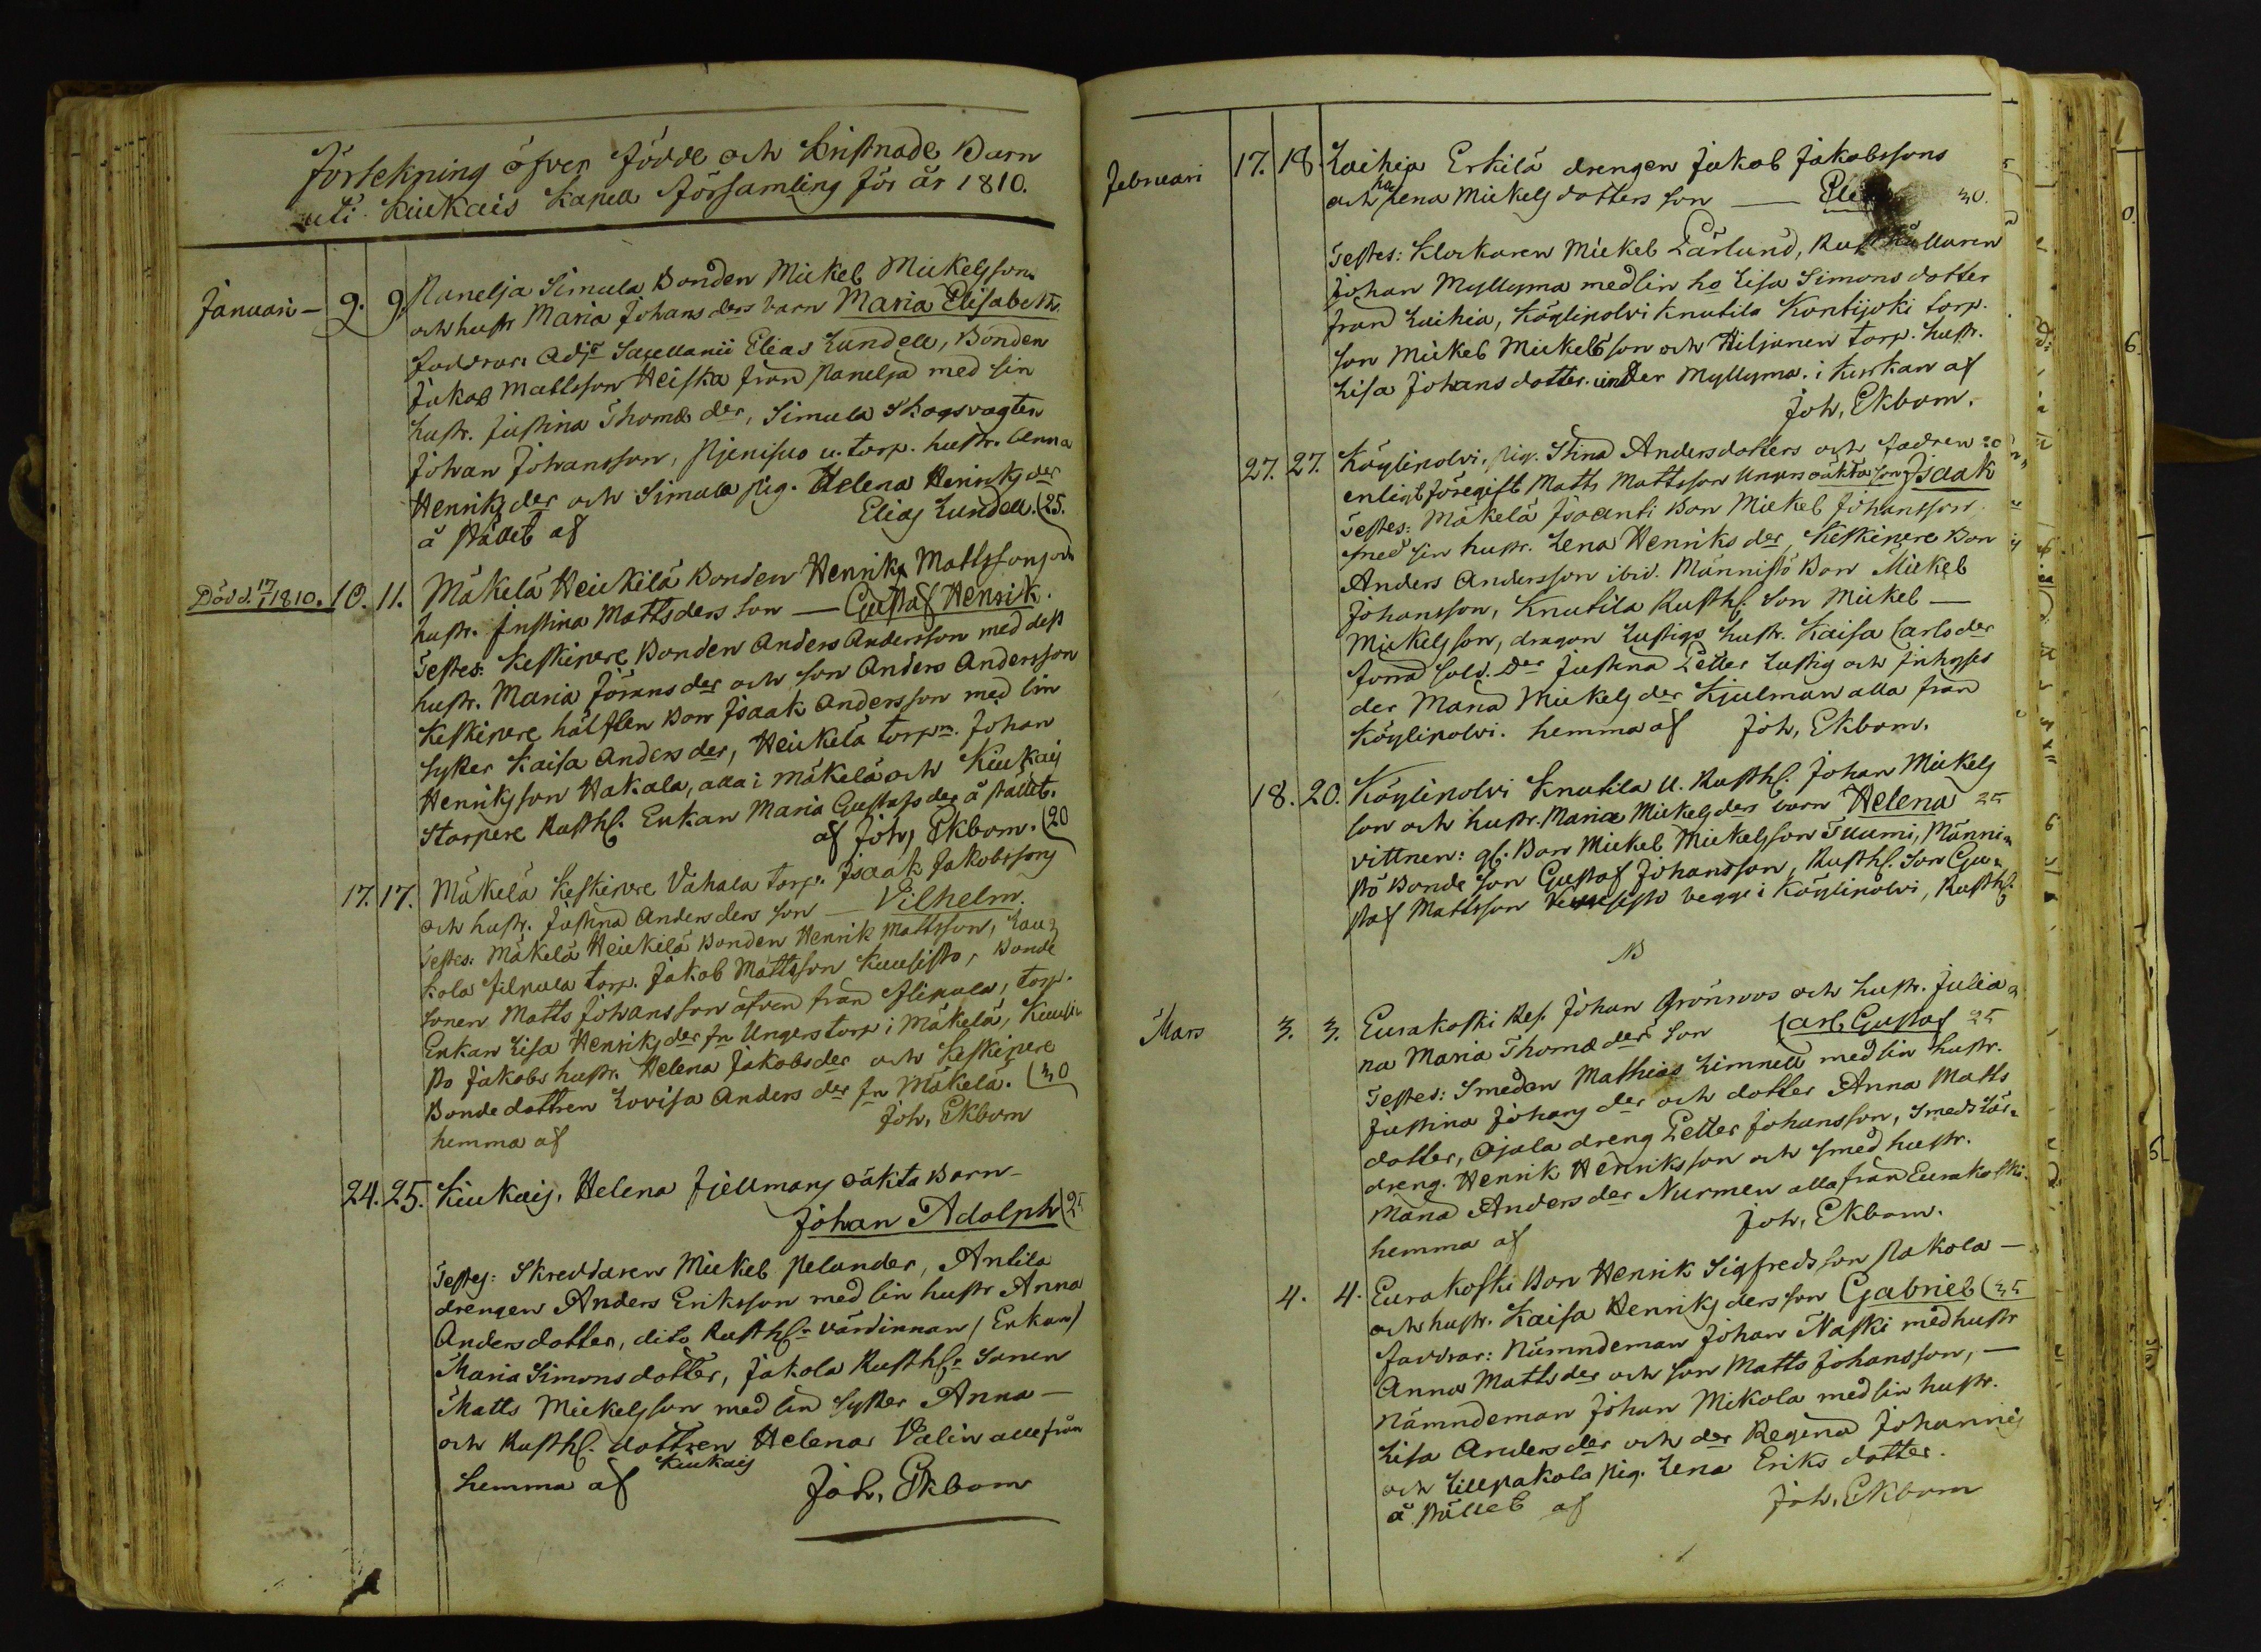 Förtekning öfver Födde och Kristnade Barn
uti Kiukais Kapell Församling för år 1810.
Januari — 9. 9. Panelja Simula Bonden Mickel Mickelsson
och hustr Maria Johans ders barn Maria Elisabeth.
Faddrar: Adj. Sacellanii Elias Lundell, Bonden
Jakob Mattsson Heiska från Panelja med sin
hustr. Justina Thomæ der, Simula Skogsvagten
Johan Johansson, u. torp. hustr. Anna
Henriks der och Simula pig. Helena Henriks der
å stället af Elias Lundell. (25.
Död d. 17/1 1810. 10. 11. Mäkelä Heickilä Bonden Henriks Mattssons och
hustr. Justina Mattsders son — Gustaf Henrik.
Testes: Keskipere Bonden Anders Andersson med dess
hustr. Maria Jörans der och son Anders Andersson
Keskipere hälften Bon Isaak Andersson med sin
syster Kaisa Anders der, Heickelä torpn. Johan
Henriksson Hakala, alla i Mäkelä och Kiukais
Storpere Rusth. Enkan Maria Gustafs der å stället.
af Joh, Ekbom. (20
17. 17. Mäkelä Keskipere Vähala torp. Isaak Jakobssons
och hustr. Justina Anders ders son — Vilhelm.
Testes: Mäkelä Heickilä Bonden Henrik Mattsson, Lau
kola Filpula torp. Jakob Mattsson Kuusisto, Bonde
sonen Matts Johansson äfven från Filpula, torp.
Enkan Lisa Henriks der fn Ungers torp i Mäkelä, Kuusi
sto Jakobs hustr. Helena Jakobs der och Keskipere
Bonde dottren Lovisa Anders der fn Mäkelä. (30
hemma af Joh, Ekbom
24. 25. Kiukais, Helena Fjellmans oäkta Barn —
Johan Adolph (25
Testes: Skreddaren Mickel Pelander, Antila
drengen Anders Eriksson med sin hustr Anna
Andersdotter, dito Rusth. värdinnan (Enkan)
Maria Simonsdotter, Jakola Rusth. sonen
Matts Mickelsson med sin syster Anna —
och Rusth. dottren Helena Valin alle från
Kiukais
hemma af Joh, Ekbom
Februari 17. 18. Laihia Erkilä drengen Jakob Jakobssons
och Lena Mickels dotters son — 30.
Testes: Klockaren Mickel Pärlund, Rusthållaren
Johan Myllyma med sin ho Lisa Simons dotter
från Laihia, Köylipolvi Knutila Kontijoki torp.
son Mickel Mickelsson och Hiljanen torp. hustr.
Lisa Johansdotter under Myllyma. i Kyrkan af
Joh, Ekbom.
27. 27. Köylipolvi, pig. Stina Andersdotters och fadren 20
enligt föregift Matts Mattsson Ungers oäkta son Isaak
Testes: Mäkelä Isoanti Bon Mickel Johansson
med sin hustr. Lena Henriks der, Keskipere Bon
Anders Andersson ibid. Männistö Bon Mickel
Johansson, Knutila Rusth. Son Mickel —
Mickelsson, dragon Lustigs hustr. Kaisa Carls der
förra sold. Der Justina Petter Lustig och Inhyses
der Maria Mickels der Kjulman alla från
Köylipolvi. hemma af Joh, Ekbom.
18. 20. Köylipolvi Knutila u. Rusth. Johan Mickels
son och hustr. Maria Mickels ders barn Helena 25
vittnen: gl. Bon Mickel Mickelsson Tuumi, Männi=
stö Bonde son Gustaf Johansson, Rusth. son Gu=
staf Mattsson begge i Köylipolvi, Rusth.
Mars 3. 3. Eurakoski Ref. Johan Grönroos och hustr. Julia=
na Maria Thomæ ders son Carl Gustaf 25
Testes: Smeden Mathias Limnell med sin hustr.
Justina Johans der och dotter Anna Matts
dotter, Ojala dreng Petter Johansson, Smeds lär=
dreng. Henrik Henriksson och smed hustr.
Maria Anders der Nurmen alla från Eurakoski.
hemma af Joh, Ekbom.
4. 4. Eurakoski Bon Henrik Sigfredsson Pakola —
och hustr. Kaisa Henriks ders son Gabriel (35
Faddrar: Nämndeman Johan Naski med hustr
Anna Matts der och son Matts Johansson, —
Nämndeman Johan Mikola med sin hustr.
Lisa Anders der och der Regina Johannis
och Lillpakola pig. Lena Eriks dotter.
å stället af Joh, Ekbom